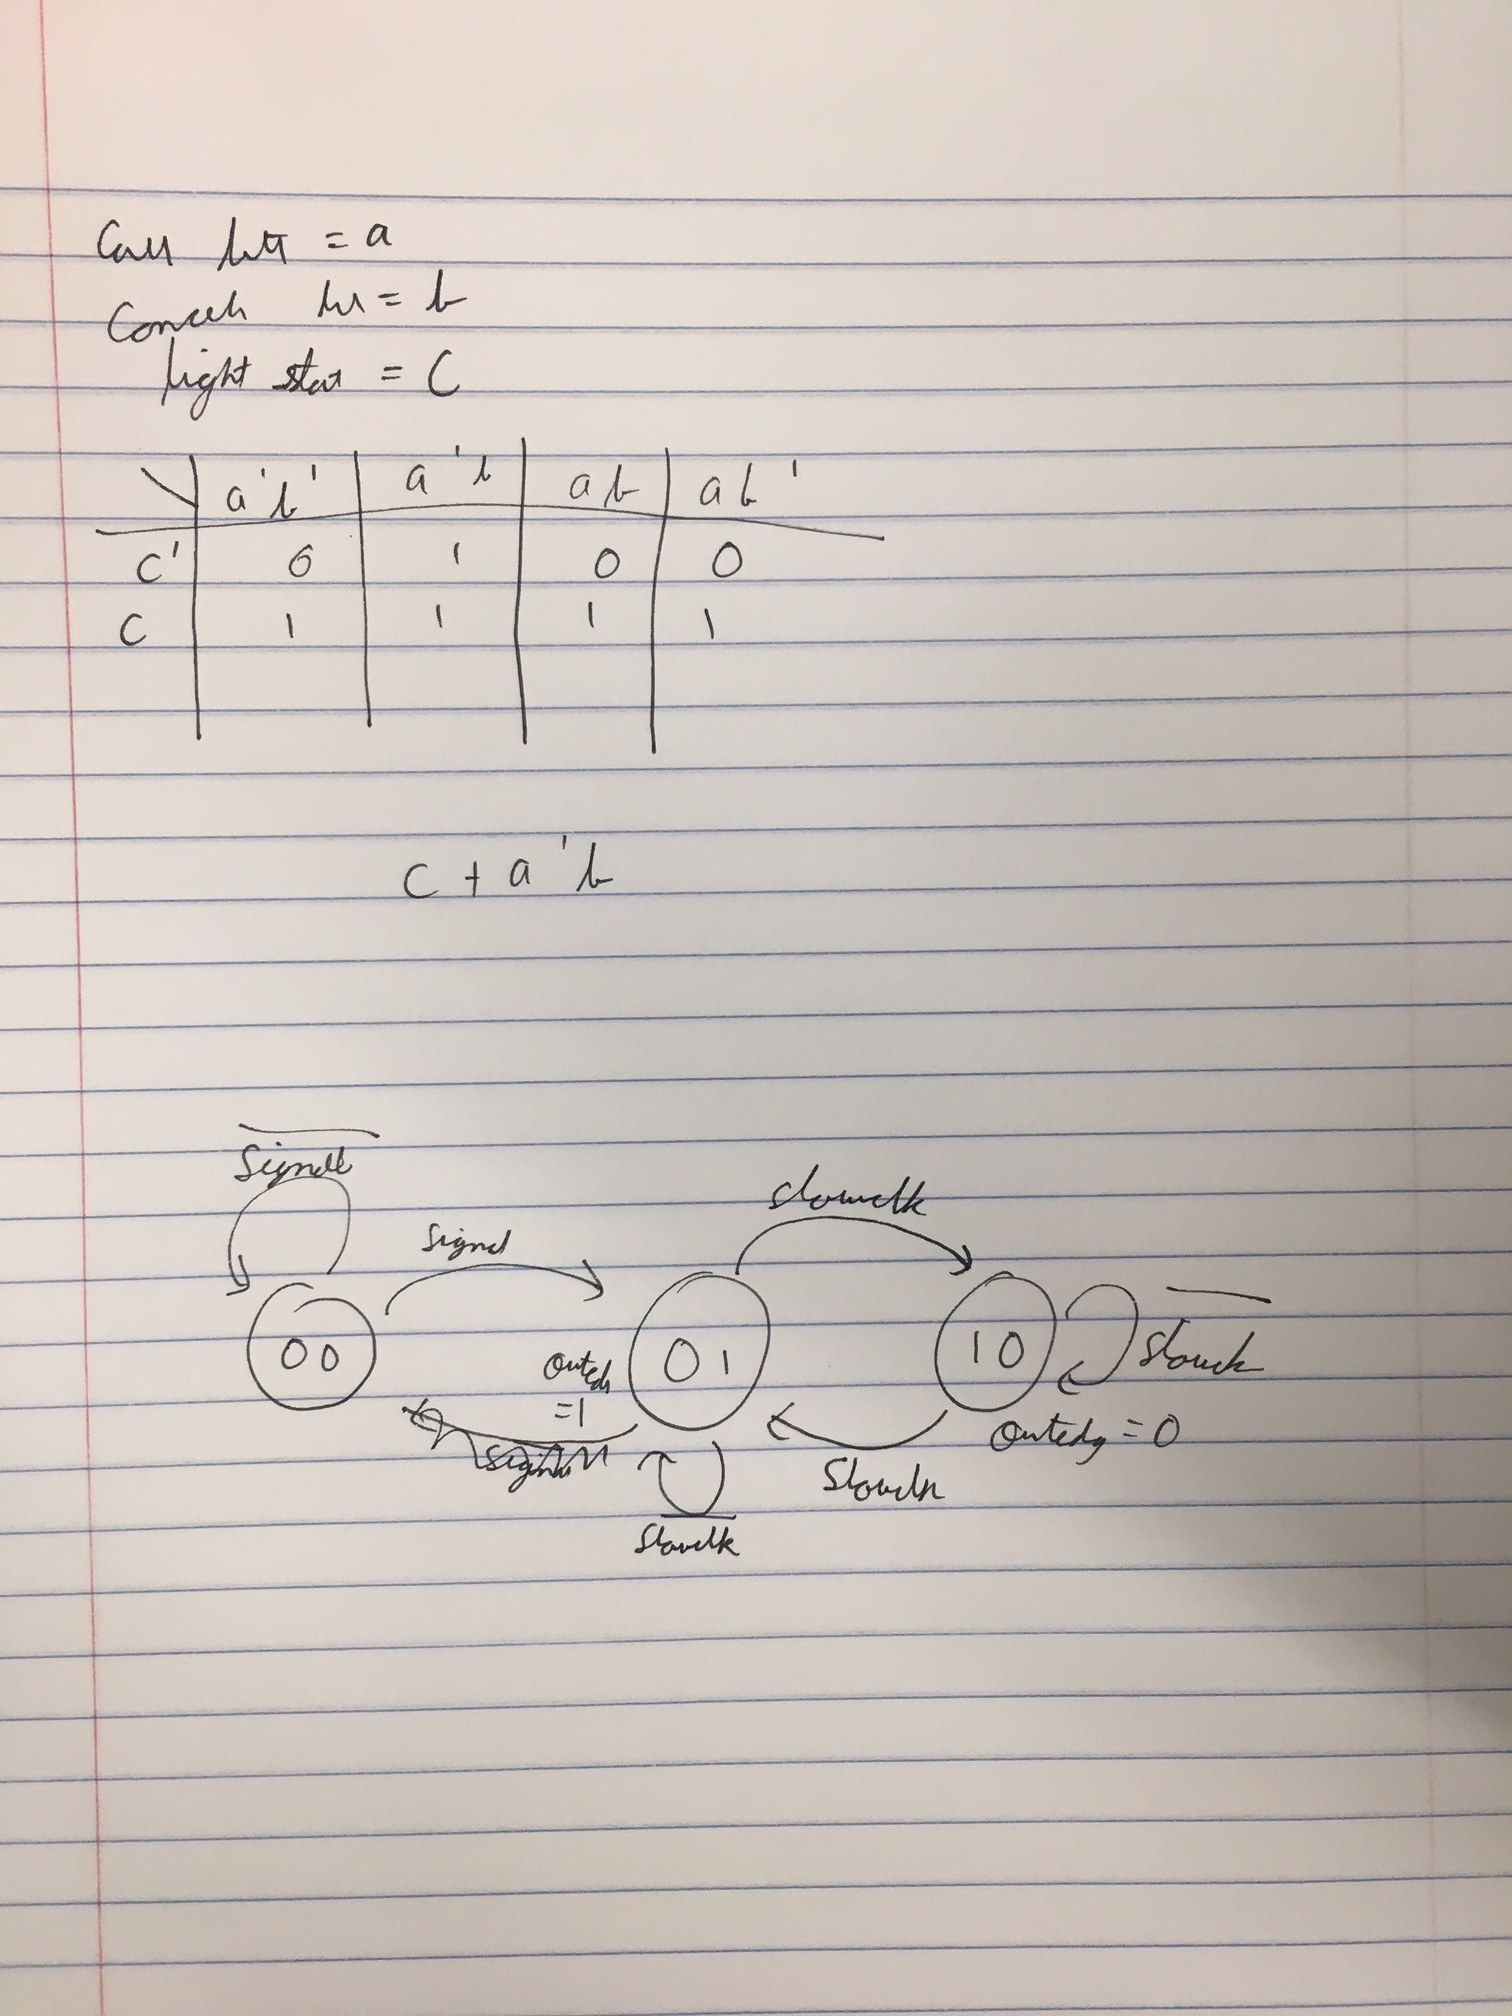 Call btt = a
Cancel btn = b
light stat = C
a'b' a'b ab ab'
C' 0 1 0 0
C 1 1 1 1
C + a'b
Signal
Signal
slowclk
00
01
10
outedg
=1
Slowclk
outedg = 0
Signal
Slowclk
Slowclk